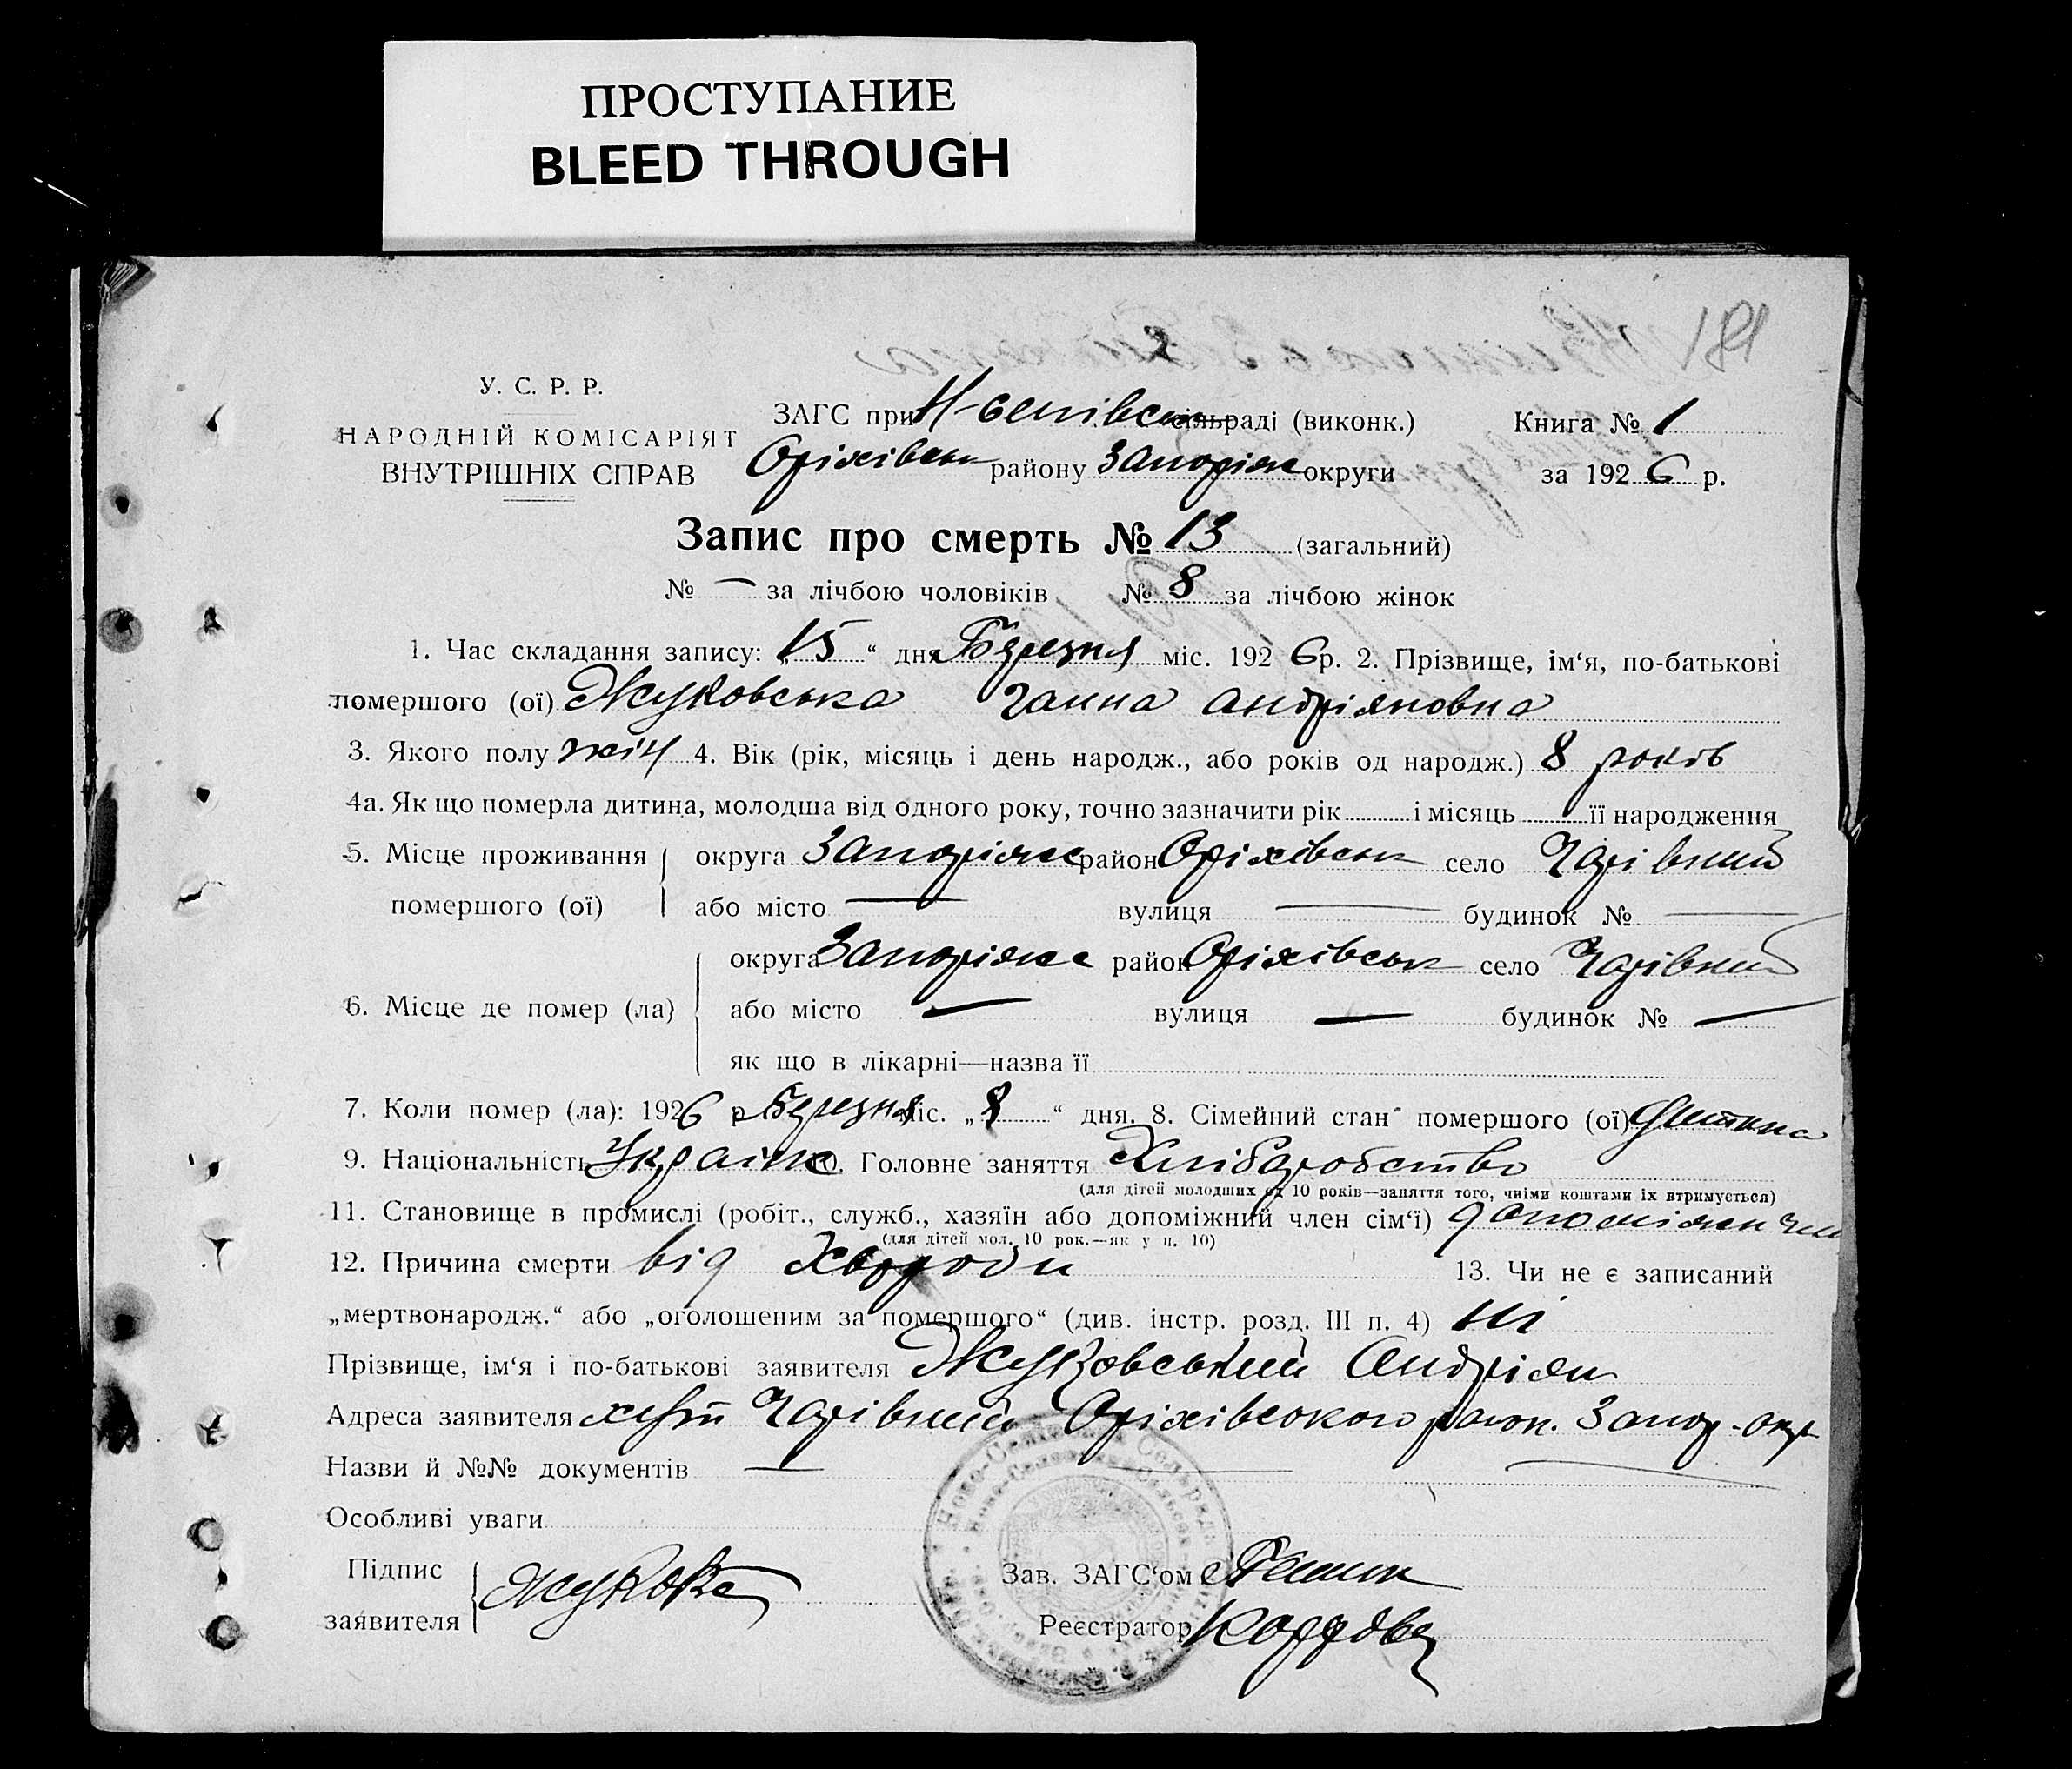 ПРОСТУПАНИЕ
BLEED THROUGH
181
У. С. Р. Р.
НАРОДНІЙ КОМІСАРІЯТ
ВНУТРІШНІХ СПРАВ
ЗАГС при сільраді (виконк.)
Оріхівськ району Запоріж округи
Книга № 1
за 1926 р.
Запис про смерть № 13 (загальний)
№ — за лічбою чоловіків № 8 за лічбою жінок
1. Час складання запису: „15“ дня Березня міс. 1926 р. 2. Прізвище, ім‘я, по-батькові
помершого (ої) Жуковська Ганна Андріяновна
3. Якого полу жін 4. Вік (рік, місяць і день народж., або років од народж.) 8 років
4а. Як що померла дитина, молодша від одного року, точно зазначити рік і місяць її народження
5. Місце проживання помершого (ої) округа Запоріжс район Оріхівськ село Чарівний
або місто — вулиця — будинок № —
6. Місце де помер (ла) округа Запоріжс район Оріхівськ село Чарівний
або місто — вулиця — будинок № —
як що в лікарні—назва її
7. Коли помер (ла): 1926 р. Березня міс. „8“ дня. 8. Сімейний стан помершого (ої) дитина
9. Національність Україн 10. Головне заняття Хліборобство
(для дітей молодших од 10 років—заняття того, чиїми коштами їх втримується)
11. Становище в промислі (робіт., служб., хазяїн або допоміжний член сім‘ї) допоміжн чл
(для дітей мол. 10 рок.—як у п. 10)
12. Причина смерти від Хвороби 13. Чи не є записаний
„мертвонародж.“ або „оголошеним за помершого“ (див. інстр. розд. III п. 4) ні
Прізвище, ім‘я і по-батькові заявителя Жуковський Андріян
Адреса заявителя хут Чарівний Оріхівського район. Запор. окр
Назви й №№ документів —
Особливі уваги
Підпис заявителя
Зав. ЗАГС‘ом
Реєстратор